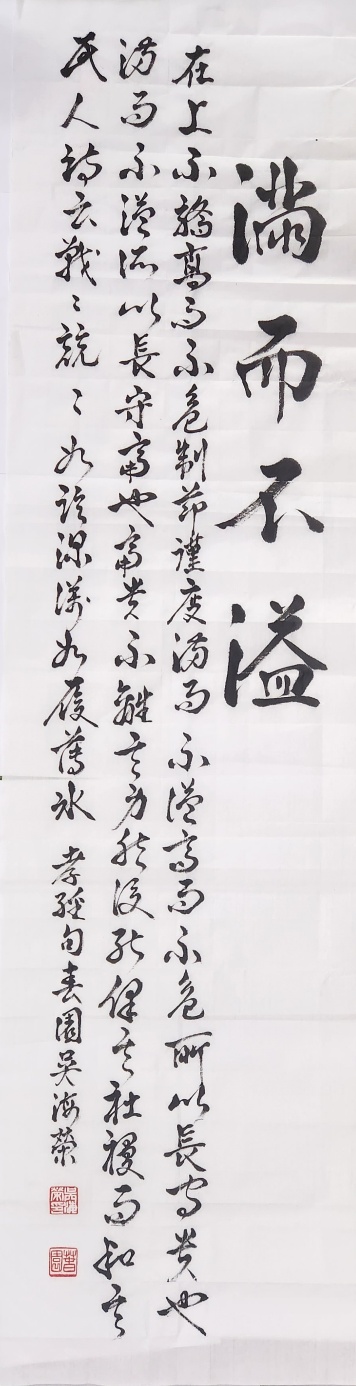 滿而不溢
在上不驕高而不危制節謹度滿而不溢高而不危所以長守貴也
滿而不溢所以長守富也富貴不離其身然後能保其社稷而和其
民人詩云戰〻兢〻如臨深淵如履薄冰 孝經句春園吳海榮